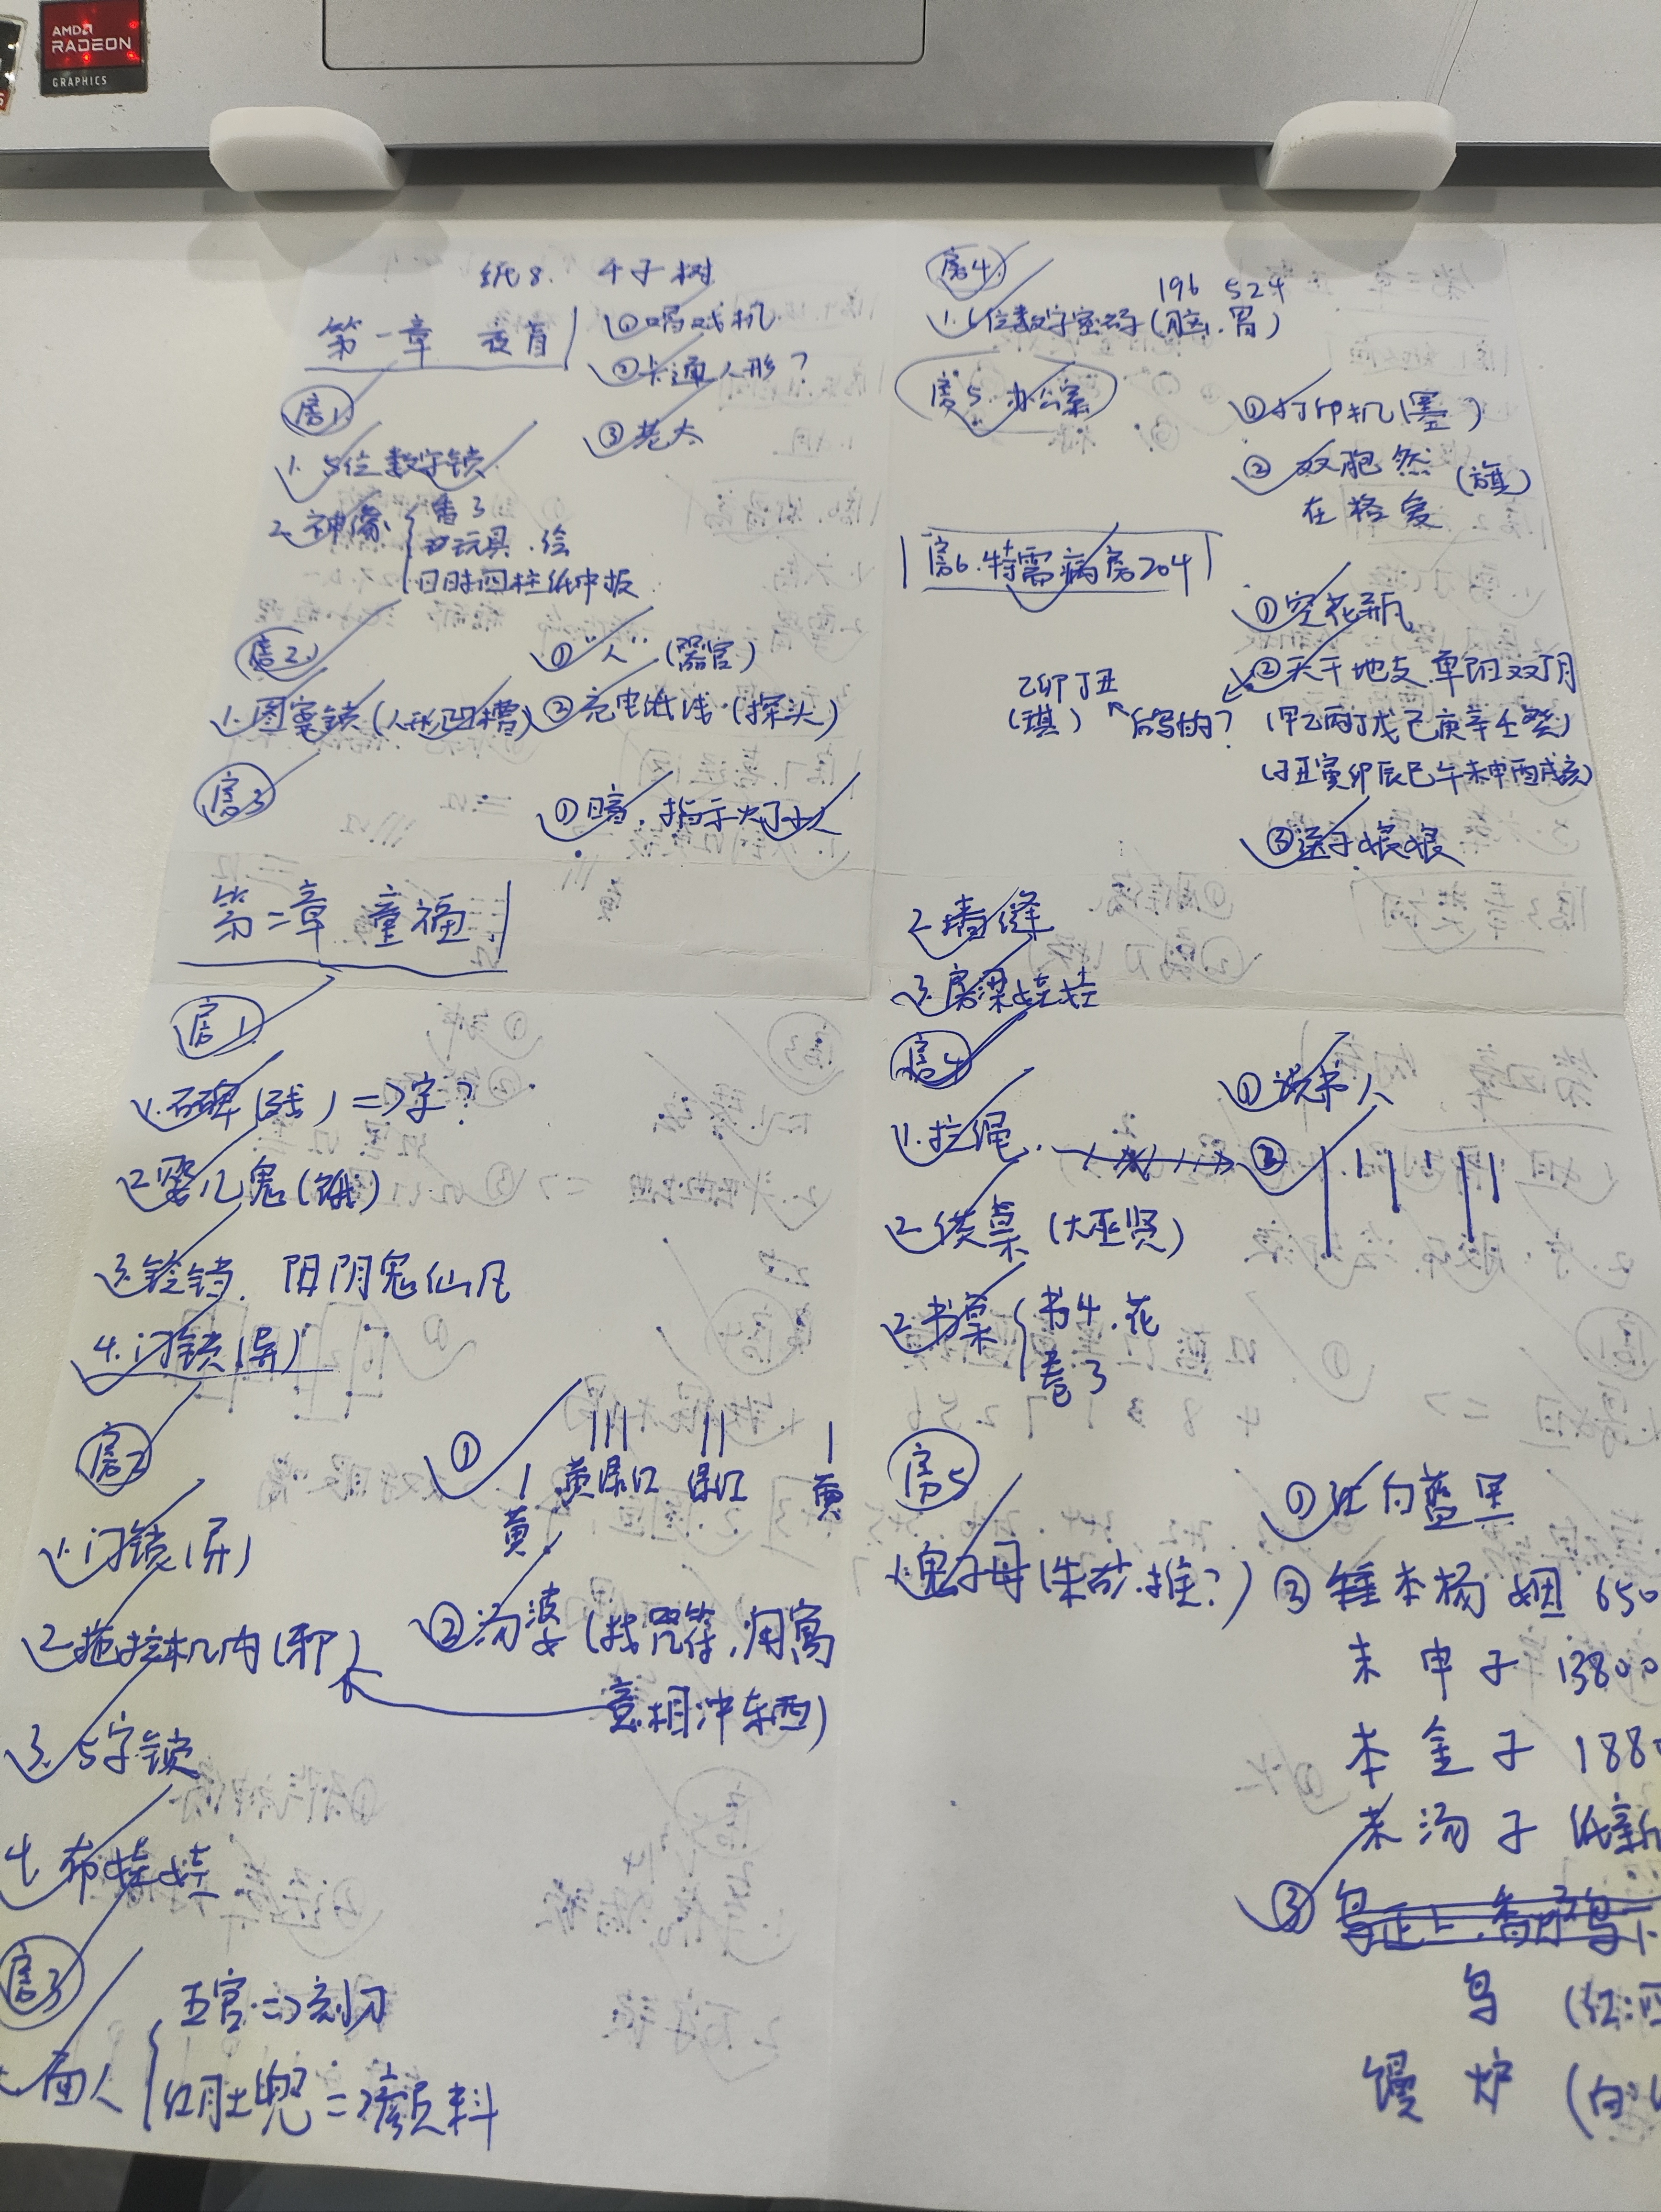 AMD
RADEON
GRAPHICS
纸8. 千子树
第一章 衣胃
①唱戏机
②卡通人形?
③老太
房1
1. 5位数字锁
2. 神像
香3
玩具.绘
日时四柱纸中报
房2
1.图案锁(人形凹槽)
①"人"(器官)
②充电低浅.(探头)
房3
①暗.指示灯
第二章 童福
房1
1.石碑(残)=>字?
2.婴儿鬼(饿)
3.铃铛. 阳阴鬼仙凡
4.门锁(异)
房2
1.门锁(异)
2.拖拉机内(邪)
3. 5字锁
4.布娃娃
①
黄 黄绿红 绿红 黄
②汤婆(找咒符,用寓
意相冲东西)
房3
面人
五官=>刻刀
红肚兜=>颜料
房4
1. 6位数字密码(脑.胃)
196 524
房5 办公室
①打印机(墨)
②双胞然
在格爱
(旗)
房6.特需病房204
①空花瓶
②天干地支.单阳双阴
(甲乙丙丁戊己庚辛壬癸)
(子丑寅卯辰巳午未申酉戌亥)
乙卯丁丑
(琪)
后写的?
③送子娘娘
2.墙缝
3.房梁娃娃
房4
1.拉绳.
2.供桌(大巫贤)
2.书桌
书4.花
卷3
①说书人
②
房5
1.鬼子母(朱砂.推?)
①红白蓝黑
②锤本杨 姻 650
未 申 子 13800
本 金 子 1880
茶 汤 子 纸新
③
鸟 (红:四
馒 炉 (白: